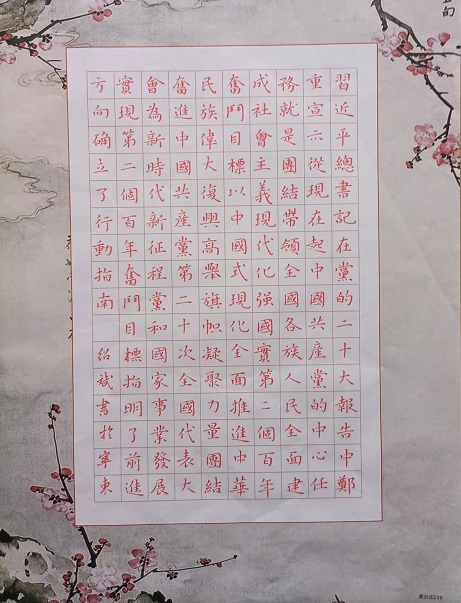 習近平總書記在黨的二十大報告中鄭
重宣六從現在起中國共產黨的中心任
務就是團結帶領全國各族人民全面建
成社會主義現代化强國實第二個百年
奮鬥目標以中國式現化全面推進中華
民族偉大復興高舉旗幟凝聚力量團結
奮進中國共產黨第二十次全國代表大
會為新時代新征程黨和國家事業發展
實現第二個百年奮鬥目標指明了前進
方向确立了行動指南 紹斌書扵寧東